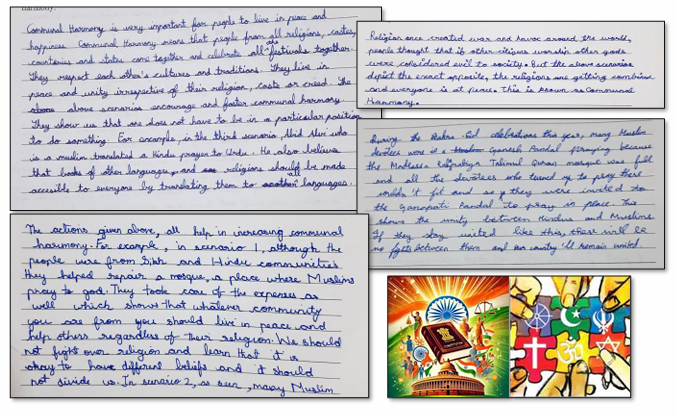 harmony.
Communal Harmony is very important for people to live in peace and
happiness. Communal Harmony means that people from all religions, castes,
countries and states come together and celebrate all the festivals together.
They respect each other's cultures and traditions. They live in
peace and unity irrespective of their religion, caste or creed. The
above scenarios encourage and foster communal harmony.
They show us that one does not have to be in a particular position
to do something. For example, in the third scenario, Abid Alvi who
is a muslim translated a Hindu prayer to Urdu. He also believes
that books of other languages, and religions should be made
accessible to everyone by translating them to all languages.
Religion once created war and havoc around the world,
people thought that if other citizens worship other gods
were considered evil to society. But the above scenarios
depict the exact opposite, the religions are getting combined
and everyone is at peace. This is known as Communal
Harmony.
During the Bakra-Eid celebrations this year, many Muslim
devotees were at a Ganesh Pandal praying because
the Madrasa Talimul Quran mosque was full
and all the devotees who turned up to pray there
couldn't fit and so they were invited to
the Ganapati Pandal to pray in place. This
shows the unity between Hindus and Muslims.
If they stay united like this, there will be
no fights between them and our country 'll remain united.
The actions given above, all help in increasing communal
harmony. For example, in scenario 1, although the
people were from Sikh and Hindu communities
they helped repair a mosque, a place where Muslims
pray to god. They took care of the expenses as
well which shows that whatever community
you are from you should live in peace and
help others regardless of their religion. We should
not fight over religion and learn that it is
okay to have different beliefs and it should
not divide us. In scenario 2, as seen, many Muslim